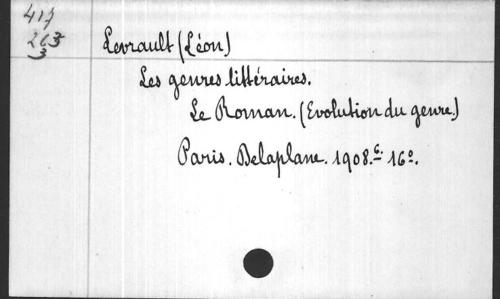 417
263
3
Levrault (Léon)
Les genres littéraires.
Le Roman. (Evolution du genre)
Paris. Delaplane. 1908. c. 16º.